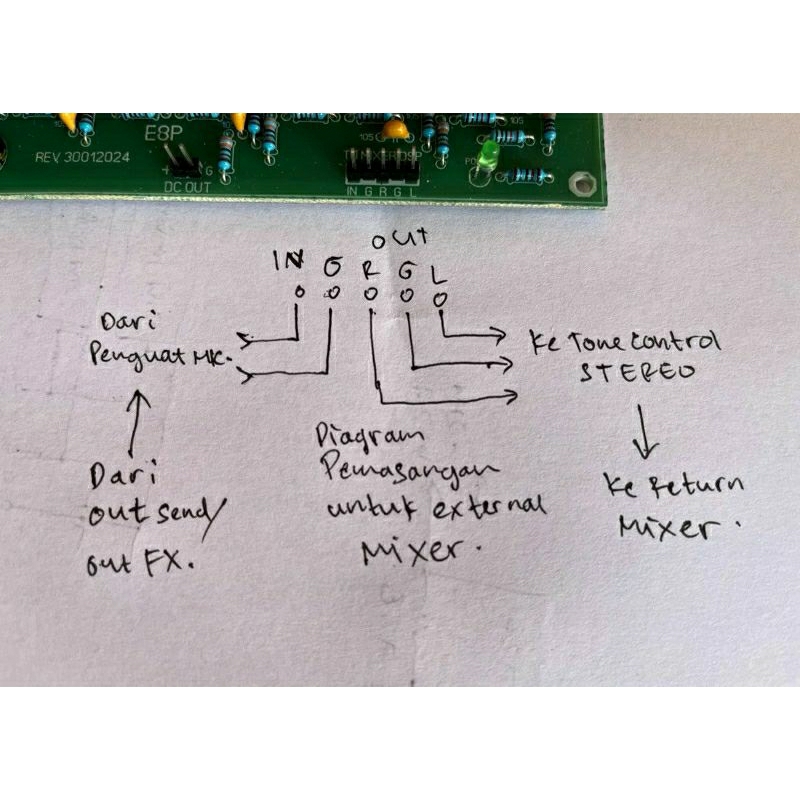 E8P
REV. 30012024
G
DC OUT
IN G R G L
OUT
IN G R G L
Dari
Penguat MIC.
Ke Tone Control
STEREO
Dari
out send/
out FX.
Diagram
Pemasangan
untuk external
Mixer.
Ke Return
Mixer.